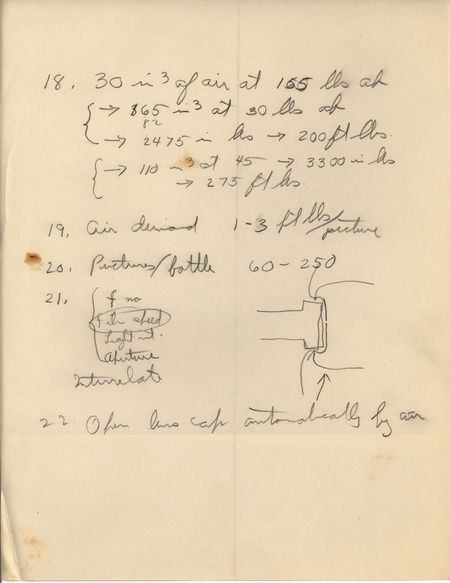 18. 30 in³ of air at 165 lbs ab
→ 165 in³ at 30 lbs ab
82
→ 2475 in lbs → 200 ft lbs.
→ 110 in³ at 45 → 3300 in lbs
→ 275 ft lbs.
19. Air demand 1-3 ft lbs/picture
20. Pictures/bottle 60-250
21. f no
Film speed
Light int.
Aperture
Interrelate
22. Open lens cap automatically by air